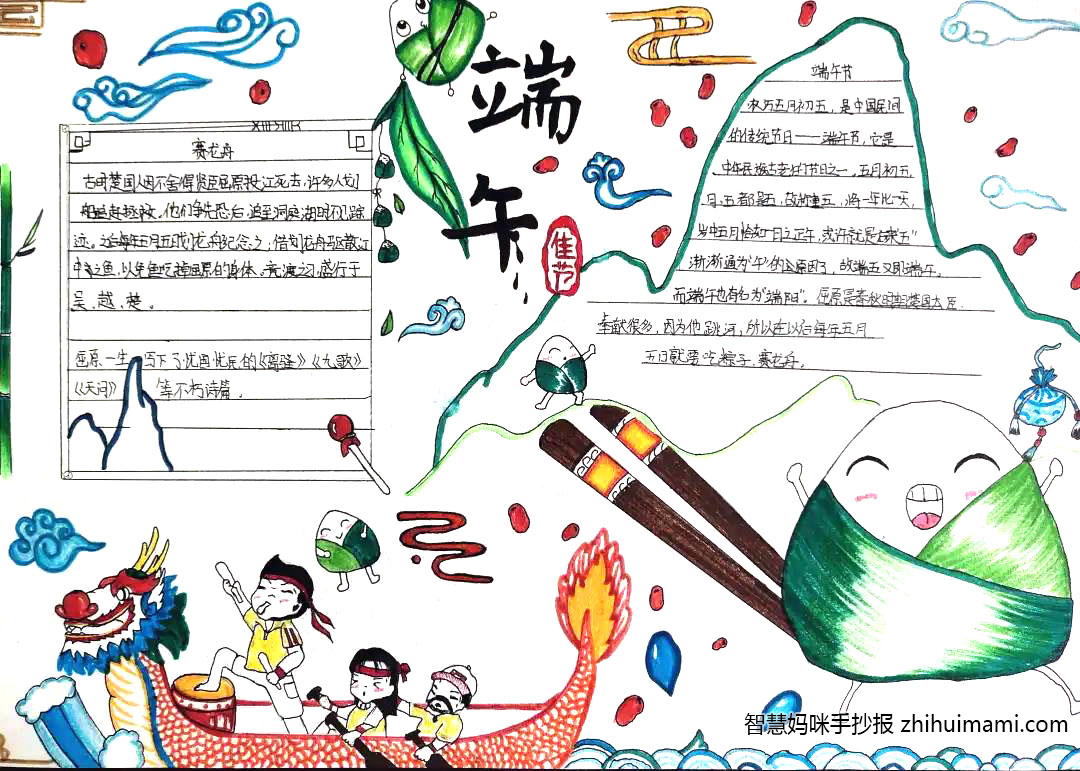 端午
佳节
赛龙舟
古时楚国人因不舍得贤臣屈原投江死去，许多人划
船追赶拯救。他们争先恐后，追至洞庭湖时不见踪
迹。之后每年五月五日划龙舟纪念之；借划龙舟驱散江
中之鱼，以免鱼吃掉屈原的身体。竞渡之习，盛行于
吴、越、楚。
屈原一生写下了忧国忧民的《离骚》《九歌》
《天问》等不朽诗篇。
端午节
农历五月初五，是中国民间
的传统节日——端午节，它是
中华民族古老的节日之一，五月初五，
月、五都是五，故称重五，
岁中五月
渐渐通为"午"的原因了，故端五又即端午。
而端午也有名为"端阳"。屈原是春秋时期楚国大臣，
奉献很多，因为他跳河，所以在以后每年五月
五日就要吃粽子、赛龙舟。
智慧妈咪手抄报 zhihuimami.com